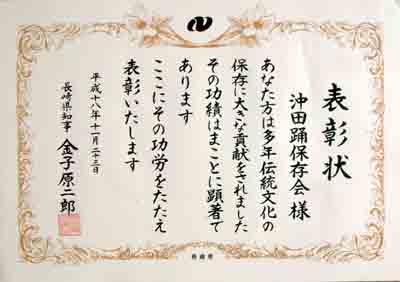 表彰状
沖田踊保存会 様
あなた方は多年伝統文化の
保存に大きな貢献をされました
その功績はまことに顕著で
あります
ここにその功労をたたえ
表彰いたします
平成十八年十一月二十三日
長崎県知事 金子原二郎
長崎県